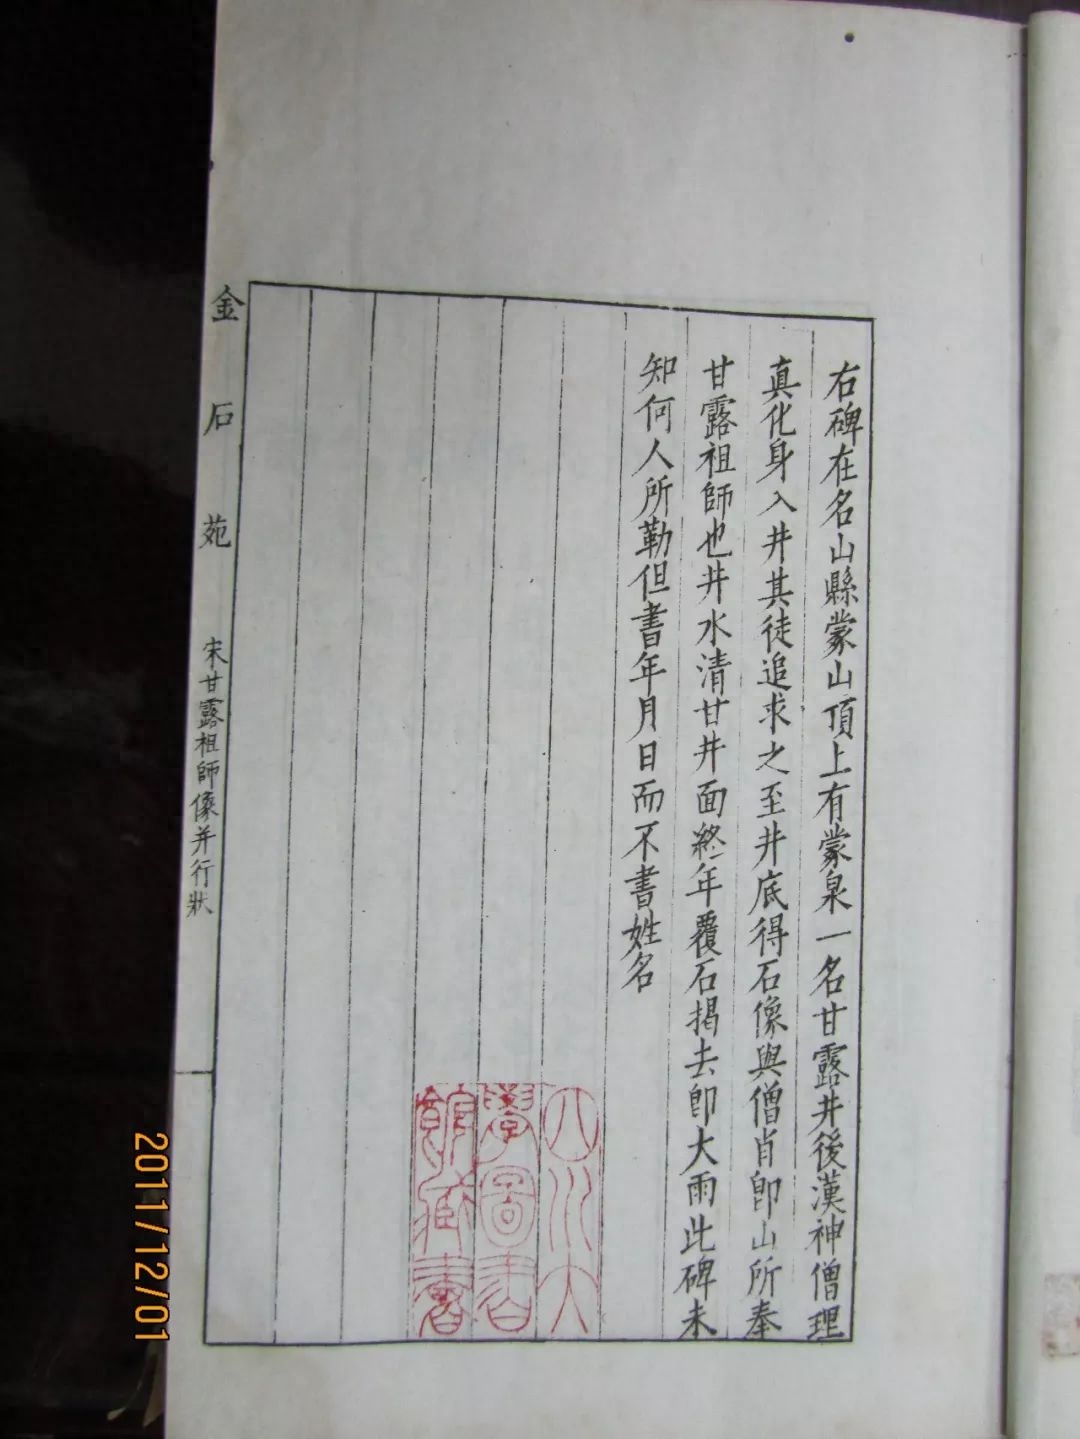 右碑在名山縣蒙山頂上有蒙泉一名甘露井後漢神僧理
真化身入井其徒追求之至井底得石像與僧肖卽山所奉
甘露祖師也井水清甘井面終年覆石揭去卽大雨此碑未
知何人所勒但書年月日而不書姓名
四川大
學圖書
館藏書
金石苑
宋甘露祖師像并行狀
2011/12/01